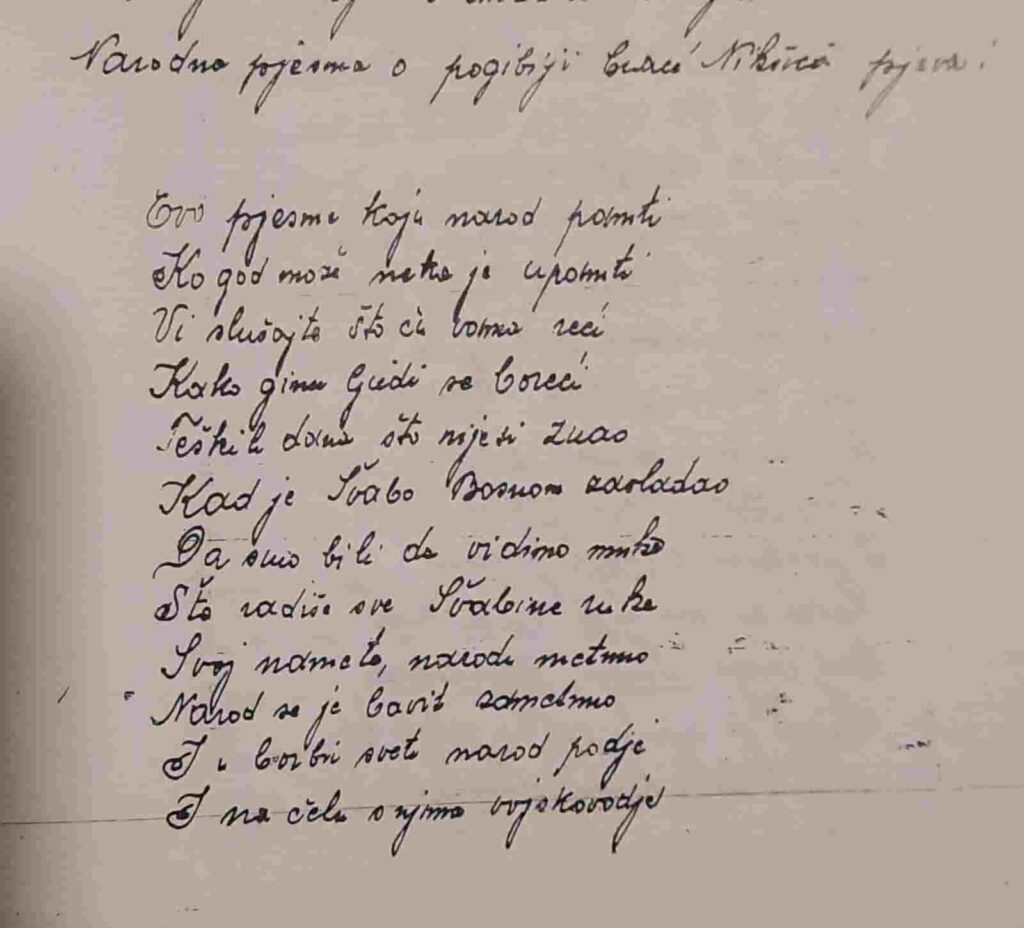 Narodna pjesma o pogibiji braće Nikšića pjeva:
Evo pjesme koju narod pamti
Ko god može neka je upamti
Vi slušajte što ću vama reći
Kako ginu ljudi se boreći
Teških dana što nijesi znao
Kad je Švabo Bosnom zavladao
Da smo bili da vidimo muke
Što radiše sve Švabine ruke
Svoj nameto, narodu metnuo
Narod se je bavit zametnuo
I u borbu sveti narod podje
I na čelu s njima vojskovodje